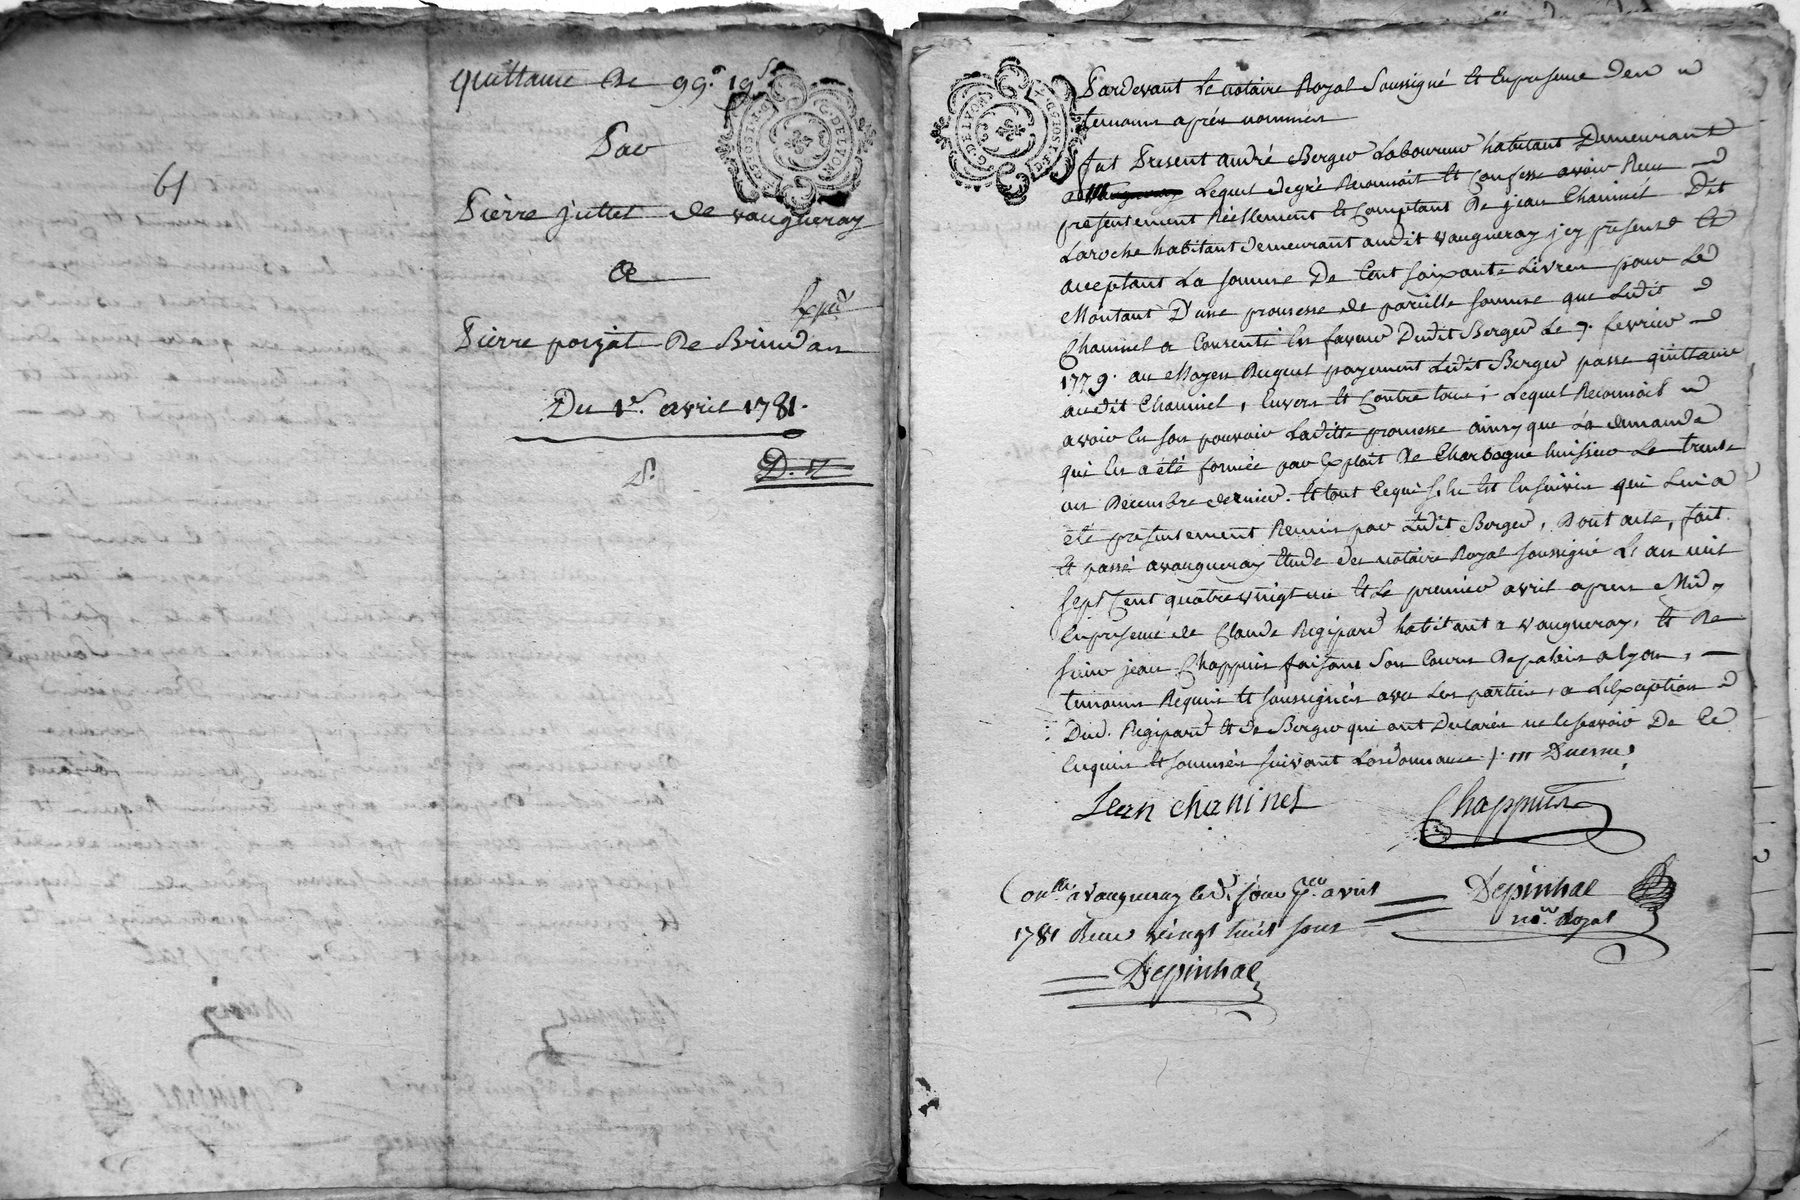 61
Quittance de 99.# 19.s
Par
Pierre juttet de vaugneray
A
Expié
Pierre poizat De Brindas
Du 1er. avril 1781.
D. V
G. DE LYON
Pardevant Le notaire Royal Soussigné Et En presence Des
temoins aprés nommés
fut Present andré Berger Laboureur habitant Demeurant
a Lequel degré Reconnoit Et Confesse avoir Reçu
presentement Réellement Et Comptant De jean Chaninel Dit
Laroche habitant demeurant audit vaugneray jcy present Et
acceptant La somme De Cent soixante Livres pour Le
Montant D'une promesse de pareille somme que Ledit
Chaninel a Consenti En faveur Dudit Berger Le 7. fevrier
1779. au Moyen Duquel payement Ledit Berger passe quittance
audit Chaninel, Envers Et Contre tous; Lequel Reconnoit
avoir En son pouvoir Laditte promesse ainsy que La demande
qui En a été formée par Exploit De Charbogne huissier Le trente
un Decembre dernier. Et tout Ce qui s'En Est Ensuivis qui Lui a
été presentement Remis par Ledit Berger, Dont acte, fait
Et passé a vaugneray Etude du notaire Royal soussigné L'an mil
sept Cent quatre vingt un Et Le premier avril apres Midy
En presence de Claude Regipard habitant a vaugneray, Et De
sieur jean Chappuis faisant son Cours De palais a Lyon,
temoins Requis Et soussignés avec Les parties, a L'Exception
Dud. Regipard Et De Berger qui ont Declarés ne le savoir De Ce
Enquis Et sommés suivant L'ordonnance
Jean chaninel
Chappuis
Conllé a vaugneray led. jour 1er. avril
1781 Reçu vingt huit sous
Depinhac
Depinhac
nore. Royal